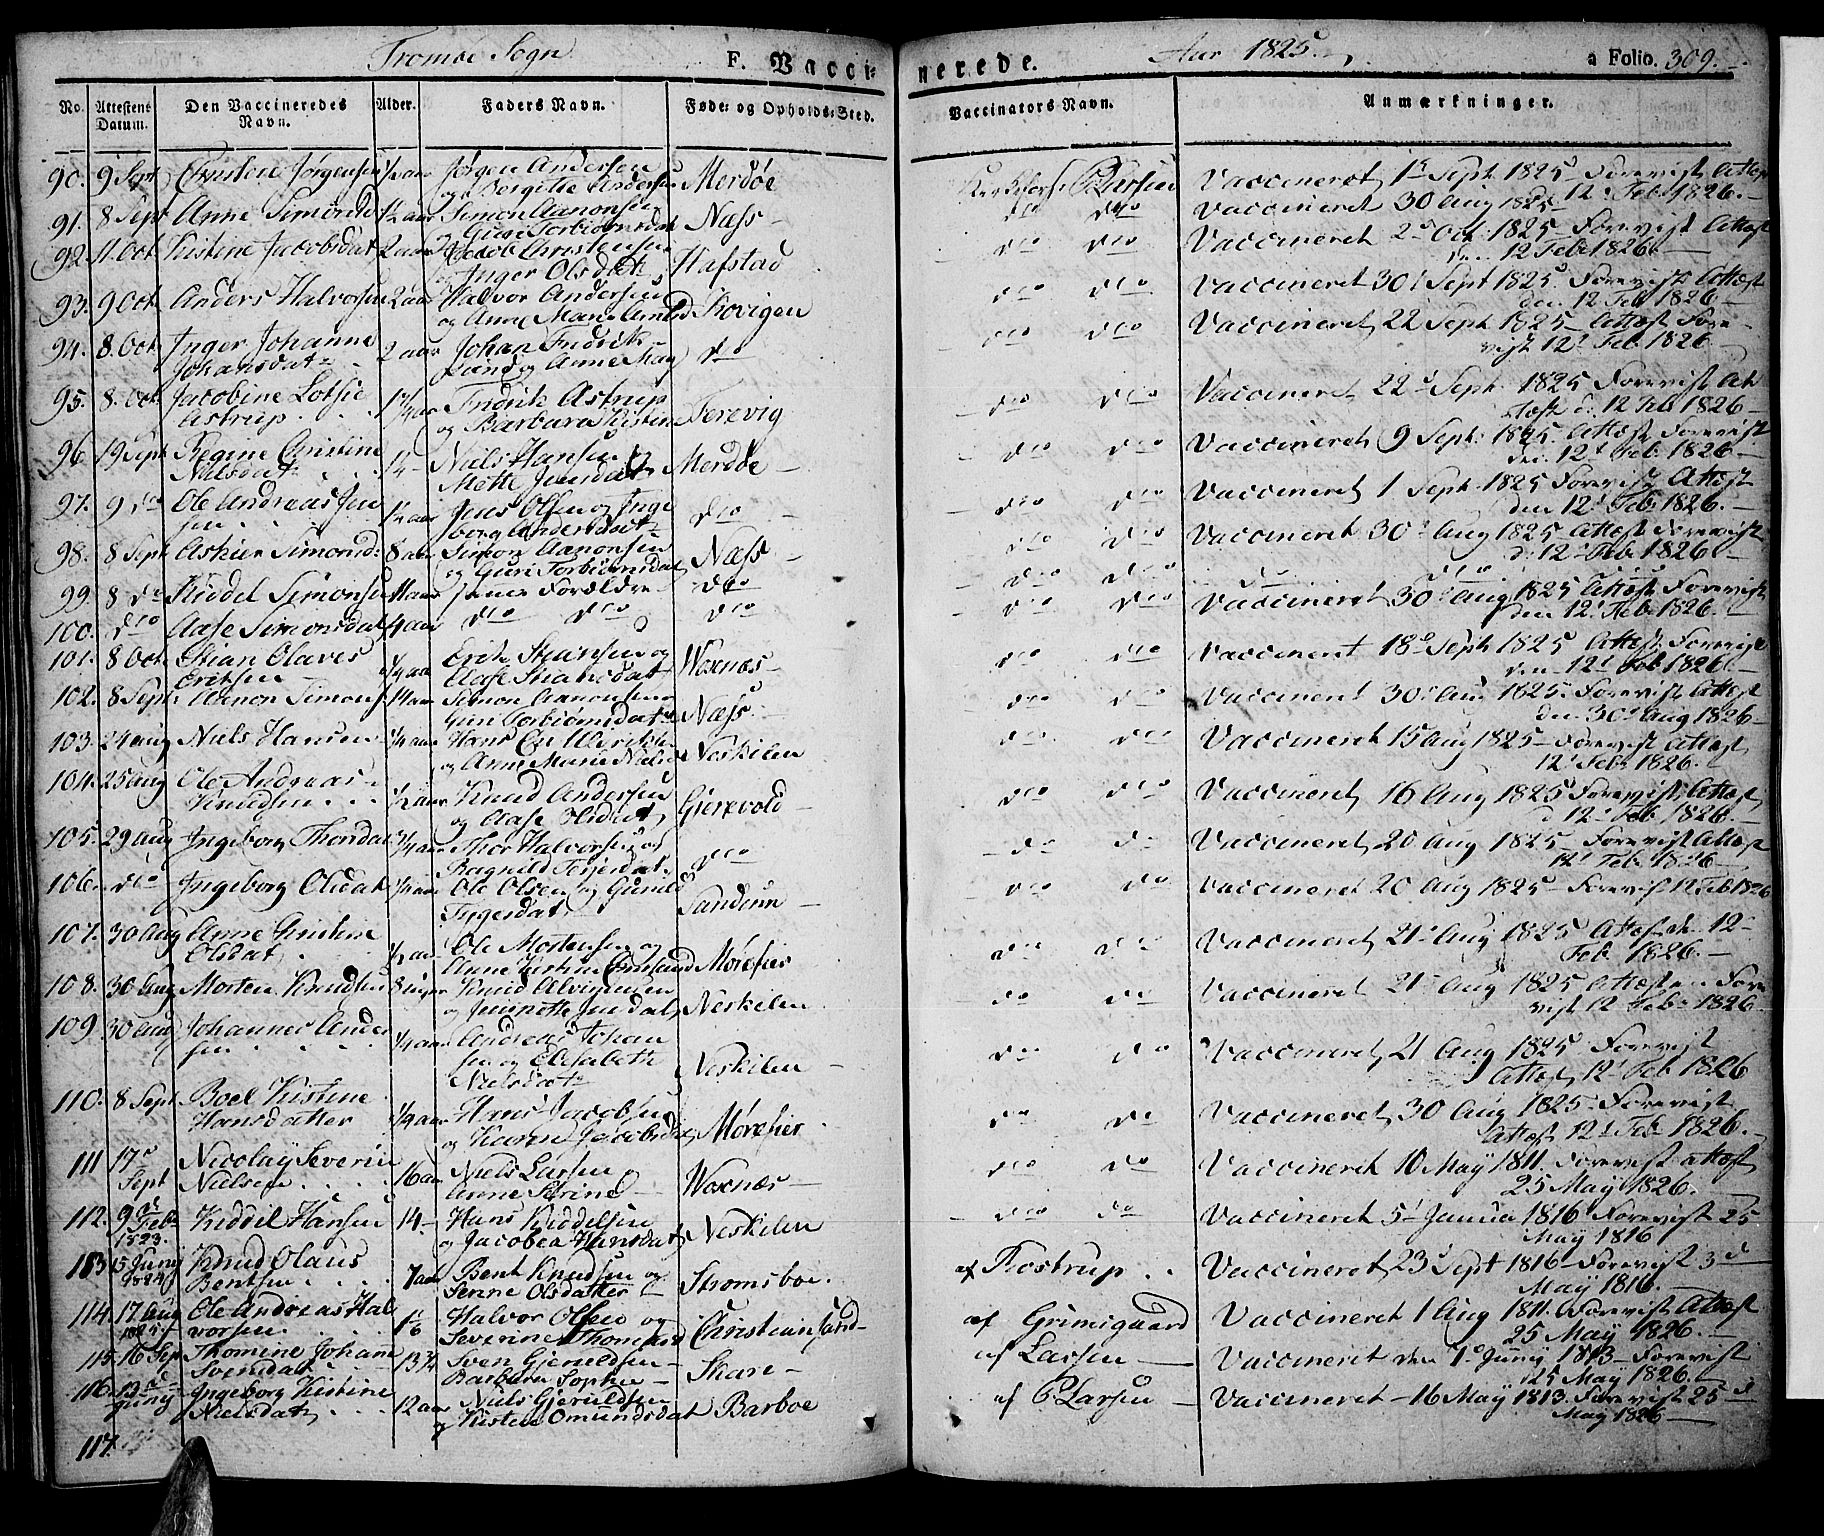 Tromøe Sogn F. Vaccinerede. Aar 1825 a Folio. 309.
No. Attestens Datum. Den Vaccineredes Navn. Alder. Faders Navn. Føde- og Opholds-Sted. Vaccinators Navn. Anmærkninger.
90. 9 Sept Christen Jørgensen 1/2 aar Jørgen Andersen og Bergitte Andersen Merdøe P Larsen Vaccineret 1 Sept 1825 Forevist Attest 12 Feb 1826.
91. 8 Sept Anne Simonsd 1/2 aar Simon Aanonsen og Guri Torbiørnsdat Næss do do Vaccineret 30 Aug 1825
92. 11. Oct Kistine Jacobsdat 2 aar Jacob Christensen Inger Olsdat Hafstad do do Vaccineret 2 Oct 1825 Forevist Attest den 12 Feb 1826
93. 9 Oct Anders Halvorsen 2 aar Halvor Andersen og Anne Marie Skovigen do do Vaccineret 30 Sept 1825. Forevist Attest den 12 Feb 1826
94. 8. Oct Inger Johanne Johansdat 2 aar Johan Fridrik Lund og Anne do do do Vaccineret 22 Sept 1825 Attest Forevist 12 Feb 1826
95. 8. Oct Jacobine Lotsie Astrup 1 1/4 aar Fridrik Astrup og Barbara Kistine Terevig do do Vaccineret 22 Sept. 1825 Forevist Attest d. 12 Feb 1826
96 19 Sept Regine Christine Nielsdat 14 Niels Hansen og Mette Jensdat Merdøe do do Vaccineret 9 Sept. 1825. Attest Forevist den 12 Feb 1826.
97. 9 do Ole Andreas Jensen 1/2 aar Jens Olsen og Ingeborg Andersdat do do do Vaccineret 1 Sept 1825 Forevist Attest den 12 Feb 1826.
98. 8 Sept Simonsd: 8 aar Simon Aanonsen og Guri Torbiørnsdat Næss do do Vaccineret 30 Aug 1825 Attest Forevist d. 12 Feb 1826
99. 8 do Kiddel Simonsen aar Forældre do do do do do
100. do Aase Simonsdat aar do do do do do Vaccineret 30 Aug 1825 Attest Forevist den 12 Feb 1826
101. 8 Oct Stian Olaves Eriksen 1/4 aar Erik Stiansen og Aase Stiansdat Woxnæs do do Vaccineret 18 Sept 1825 Attest. Forevist den 12 Feb 1826
102. 8 Sept Aanon Simons 14 aar Simon Aanonsen og Guri Torbiørnsdat Næss do do Vaccineret 30 Aug 1825. Forevist Attest den 30 Aug 1826
103. 24 aug Niels Hansen 1/4 aar Hans og Anne Marie Nielsd Neskilen do do Vaccineret 15 Aug 1825 Forevist Attest 12 Feb 1826.
104. 25 aug Ole Andreas Knudsen 1/2 aar Knud Andersen og Aase Olsdat Gjerevold do do Vaccineret 16 Aug 1825 Forevist Attest d 12 Feb 1826
105. 29 Aug Ingeborg Thorsdat 1/4 aar Thor Halvorsen og Ragnild Terjesdat do do do Vaccineret 20 Aug 1825 Forevist Attest 12 Feb 1826
106. do Ingeborg Olsdat 1/2 aar Ole Olsen og Gunild Sandum do do Vaccineret 20 Aug 1825 Forevist 12 Feb 1826
107. 30 Aug Anne Kistine Olsdat 1/2 aar Ole Mortensen og Anne Kistine Mørefier do do Vaccineret 21 Aug 1825 Attest d. 12 Feb 1826.
108. 30 Aug Morten Knudsen 8 uger Knud og Jensdat Neskilen do do Vaccineret 21 Aug 1825 Attest Forevist 12 Feb 1826
109 30 Aug Johannes Andersen 1/4 aar Andreas Johansen og Elisabeth Nielsdat Neskilen do do Vaccineret 21 Aug 1825 Forevist Attest 12 Feb 1826
110. 8 Sept Boel Kistine Hansdatter 1/4 aar Hans Jacobsen og Karen Jacobsdat Mørefier do do Vaccineret 30 Aug 1825. Forevist Attest 12 Feb 1826.
111 17 Sept Nicolay Severin Nielsen 16 aar Niels Larsen Anne Serine Woxnæs do do Vaccineret 10 May 1811. Forevist Attest 25 May 1826.
112. 9 Feb 1823. Kiddel Hansen 14 Hans Kiddelsen og Jacobea Hansdat Neskilen do do Vaccineret 5 Janua 1816 Forevist 25 May 1816
113 15 Juny 1824 Knud Olaus Bentsen 7 aar Bent Knudsen og Serine Olsdatter Stromsboe. af Rostrup Vaccineret 23 Sept 1816 Forevist 3 d May 1816.
114. 17 Aug 1825. Ole Andreas Halvorsen Halvor Olsen og Severine Thomasd Christiansand af Grimsgaard Vaccineret 1 Aug 1811. Forevist Attest 25 May 1826.
115 16 Sep Thomine Johane Svensdat 13 3/4 Sven Gjeruldsen Barbara Sophie Skare af Larsen Vaccineret den 1 Juny 1813 Forevist 25 May 1826.
116. 13 Juny Ingeborg Kistine Nielsdat 12 aar Niels Gjeruldsen og Kisten Omundsdat Barboe af P Larsen Vaccineret 16 May 1813. Forevist 25 d May 1826
117.